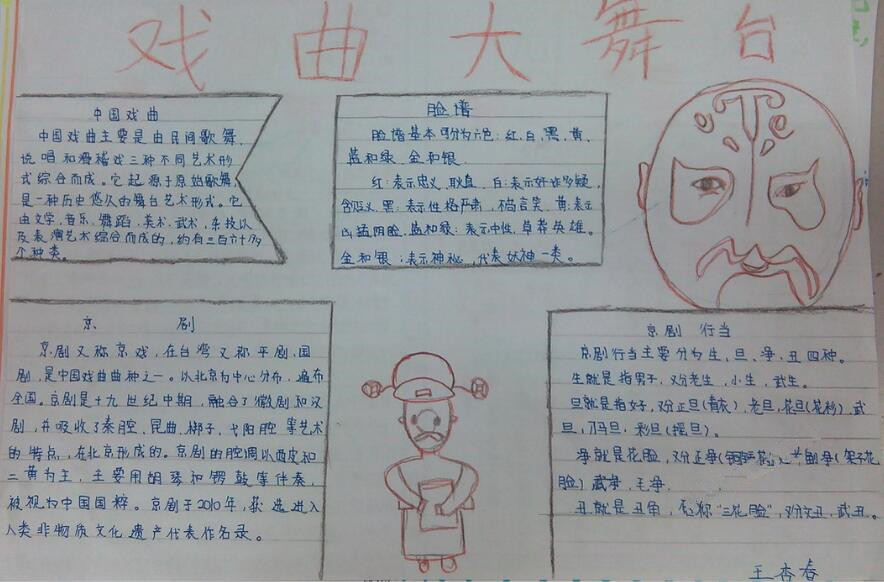 戏曲大舞台
中国戏曲
中国戏曲主要是由民间歌舞、
说唱和滑稽戏三种不同艺术形
式综合而成。它起源于原始歌舞,
是一种历史悠久的舞台艺术形式。它
由文学,音乐,舞蹈,美术,武术,杂技以
及表演艺术综合而成的,约有三百六十多
个种类。
脸谱
脸谱基本可分为六色:红,白,黑,黄,
蓝和绿,金和银.
红:表示忠义,耿直,白:表示奸诈多疑,
含贬义,黑:表示性格严肃,不苟言笑,黄:表示
凶猛阴险,蓝和绿:表示中性,草莽英雄。
金和银:表示神秘,代表妖神一类。
京剧
京剧又称京戏,在台湾又称平剧,国
剧,是中国戏曲曲种之一。以北京为中心分布,遍布
全国。京剧是十九世纪中期,融合了徽剧和汉
剧,并吸收了秦腔,昆曲,梆子,弋阳腔等艺术
的特点,在北京形成的。京剧的腔调以西皮和
二黄为主,主要用胡琴和锣鼓等伴奏,
被视为中国国粹。京剧于2010年,获选进入
人类非物质文化遗产代表作名录。
京剧行当
京剧行当主要分为生,旦,净,丑四种。
生就是指男子,又分老生,小生,武生。
旦就是指女子,又分正旦(青衣),老旦,花旦(花衫)武
旦,刀马旦,彩旦(摇旦)。
净就是花脸,又分正净 副净(架子花
脸)武净,毛净.
丑就是丑角, 称"三花脸",又分文丑,武丑。
王杏春